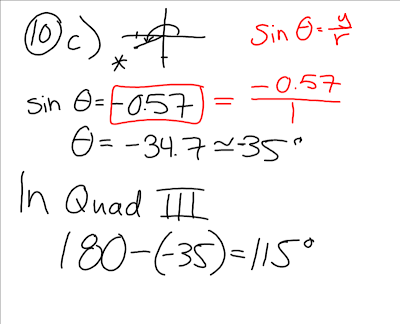 10 c) sin θ = y/r
*
sin θ = -0.57 = -0.57/1
θ = -34.7 ≃ -35°
In Quad III
180-(-35)=115°